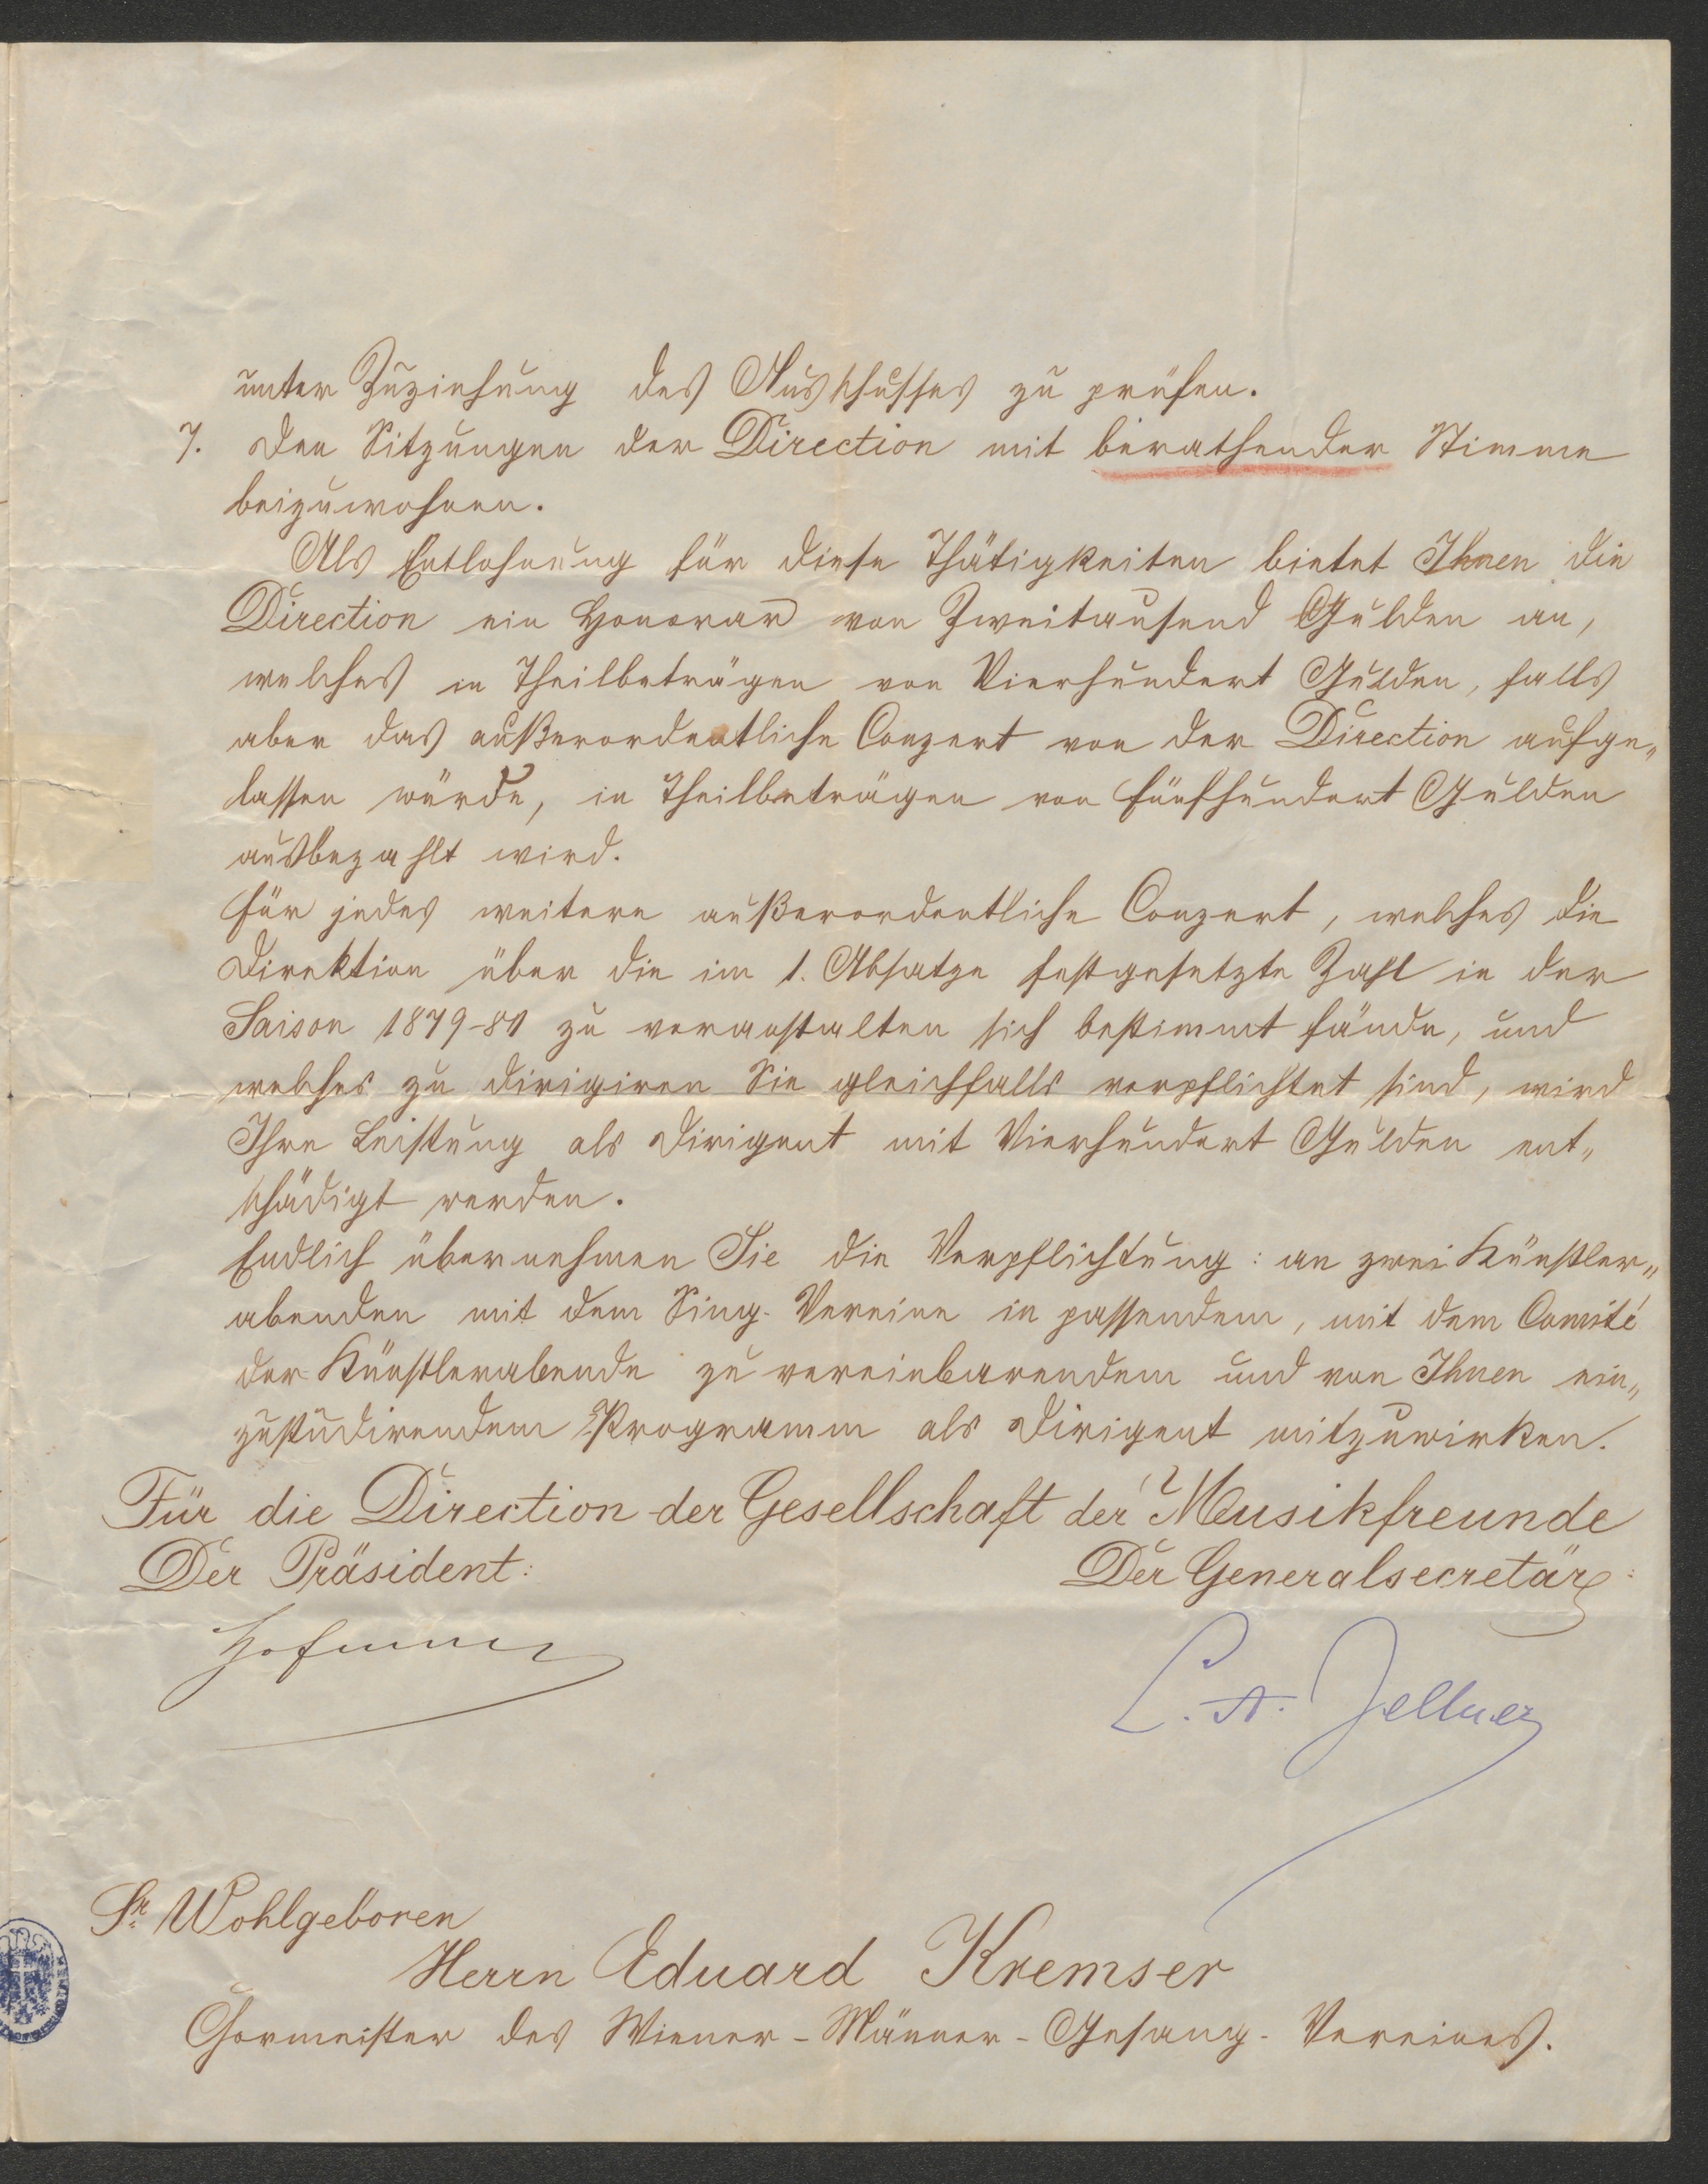 unter Zuziehung des Ausschusses zu prüfen.
7. Den Sitzungen der Direction mit berathender Stimme
beizuwohnen.
Als Entlohnung für diese Thätigkeiten bietet Ihnen die
Direction ein Honorar von Zweitausend Gulden an,
welches in Theilbeträgen von Vierhundert Gulden, falls
aber das außerordentliche Conzert von der Direction aufge„
lassen würde, in Theilbeträgen von Fünfhundert Gulden
ausbezahlt wird.
Für jedes weitere außerordentliche Conzert, welches die
Direktion über die im 1. Absatze festgesetzte Zahl in der
Saison 1879-80 zu veranstalten sich bestimmt fände, und
welches zu dirigiren Sie gleichfalls verpflichtet sind, wird
Ihre Leistung als Dirigent mit Vierhundert Gulden ent„
schädigt werden.
Endlich übernehmen Sie die Verpflichtung: an zwei Künstler„
abenden mit dem Sing-Vereine in passendem, mit dem Comité
der Künstlerabende zu vereinbarendem und von Ihnen ein„
zustudirendem Programm als Dirigent mitzuwirken.
Für die Direction der Gesellschaft der Musikfreunde
Der Präsident: Der Generalsecretär:
Hofmann L. A. Zellner
Sr. Wohlgeboren
Herrn Eduard Kremser
Chormeister des Wiener-Männer-Gesang-Vereines.